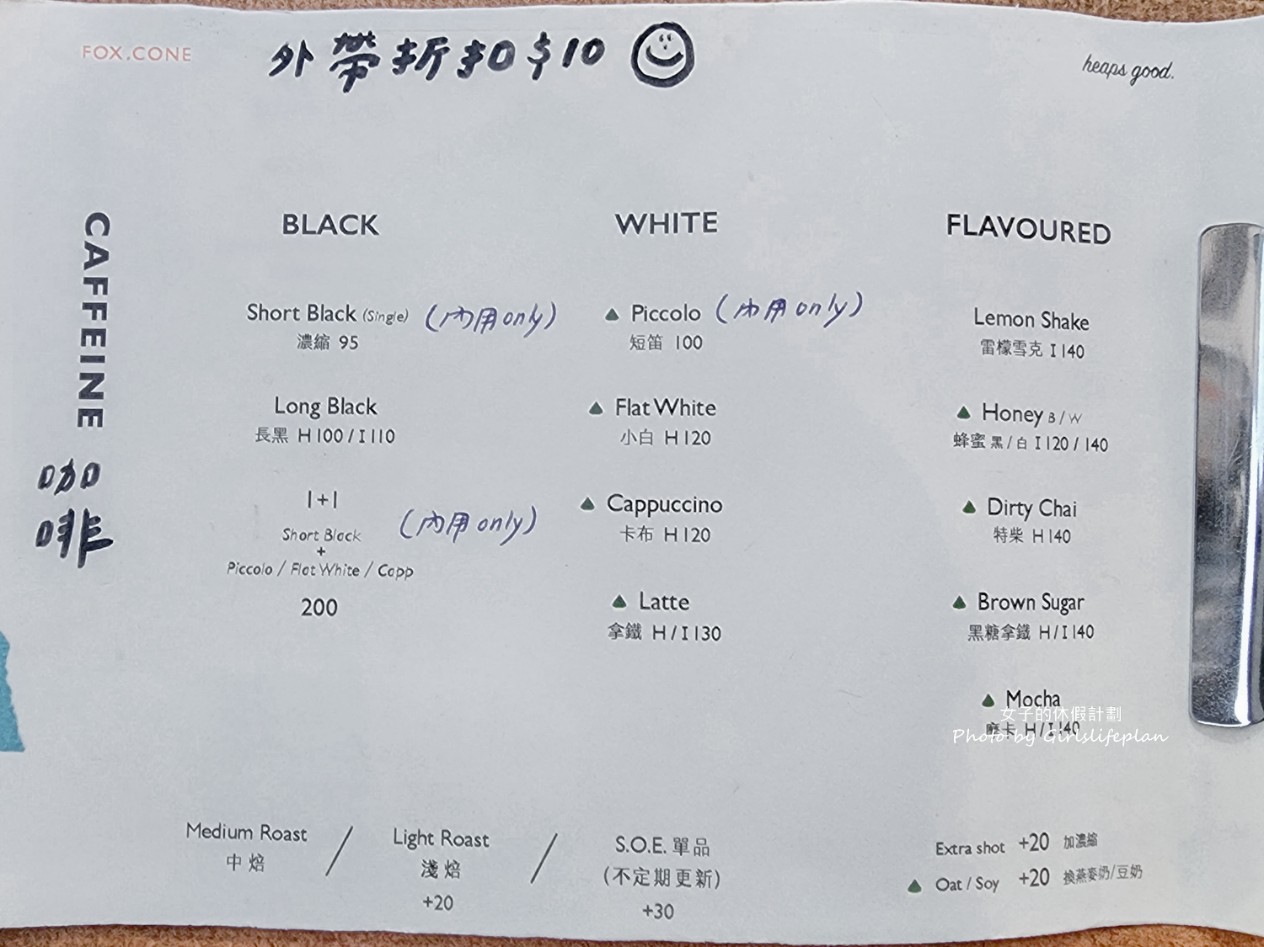 FOX.CONE
外帶折扣$10
heaps good.
CAFFEINE
咖啡
BLACK
Short Black (Single) (內用only)
濃縮 95
Long Black
長黑 H 100 / I 110
1+1
(內用only)
Short Black
+
Piccolo / Flat White / Capp
200
WHITE
▲ Piccolo (內用only)
短笛 100
▲ Flat White
小白 H 120
▲ Cappuccino
卡布 H 120
▲ Latte
拿鐵 H / I 130
FLAVOURED
Lemon Shake
雷檬雪克 I 140
▲ Honey B / W
蜂蜜 黑 / 白 I 120 / 140
▲ Dirty Chai
特柴 H 140
▲ Brown Sugar
黑糖拿鐵 H / I 140
▲ Mocha
摩卡 H / I 140
女子的休假計劃
Photo by Girlslifeplan
Medium Roast
中焙
/
Light Roast
淺焙
+20
/
S.O.E. 單品
(不定期更新)
+30
Extra shot +20 加濃縮
▲ Oat / Soy +20 換燕麥奶/豆奶